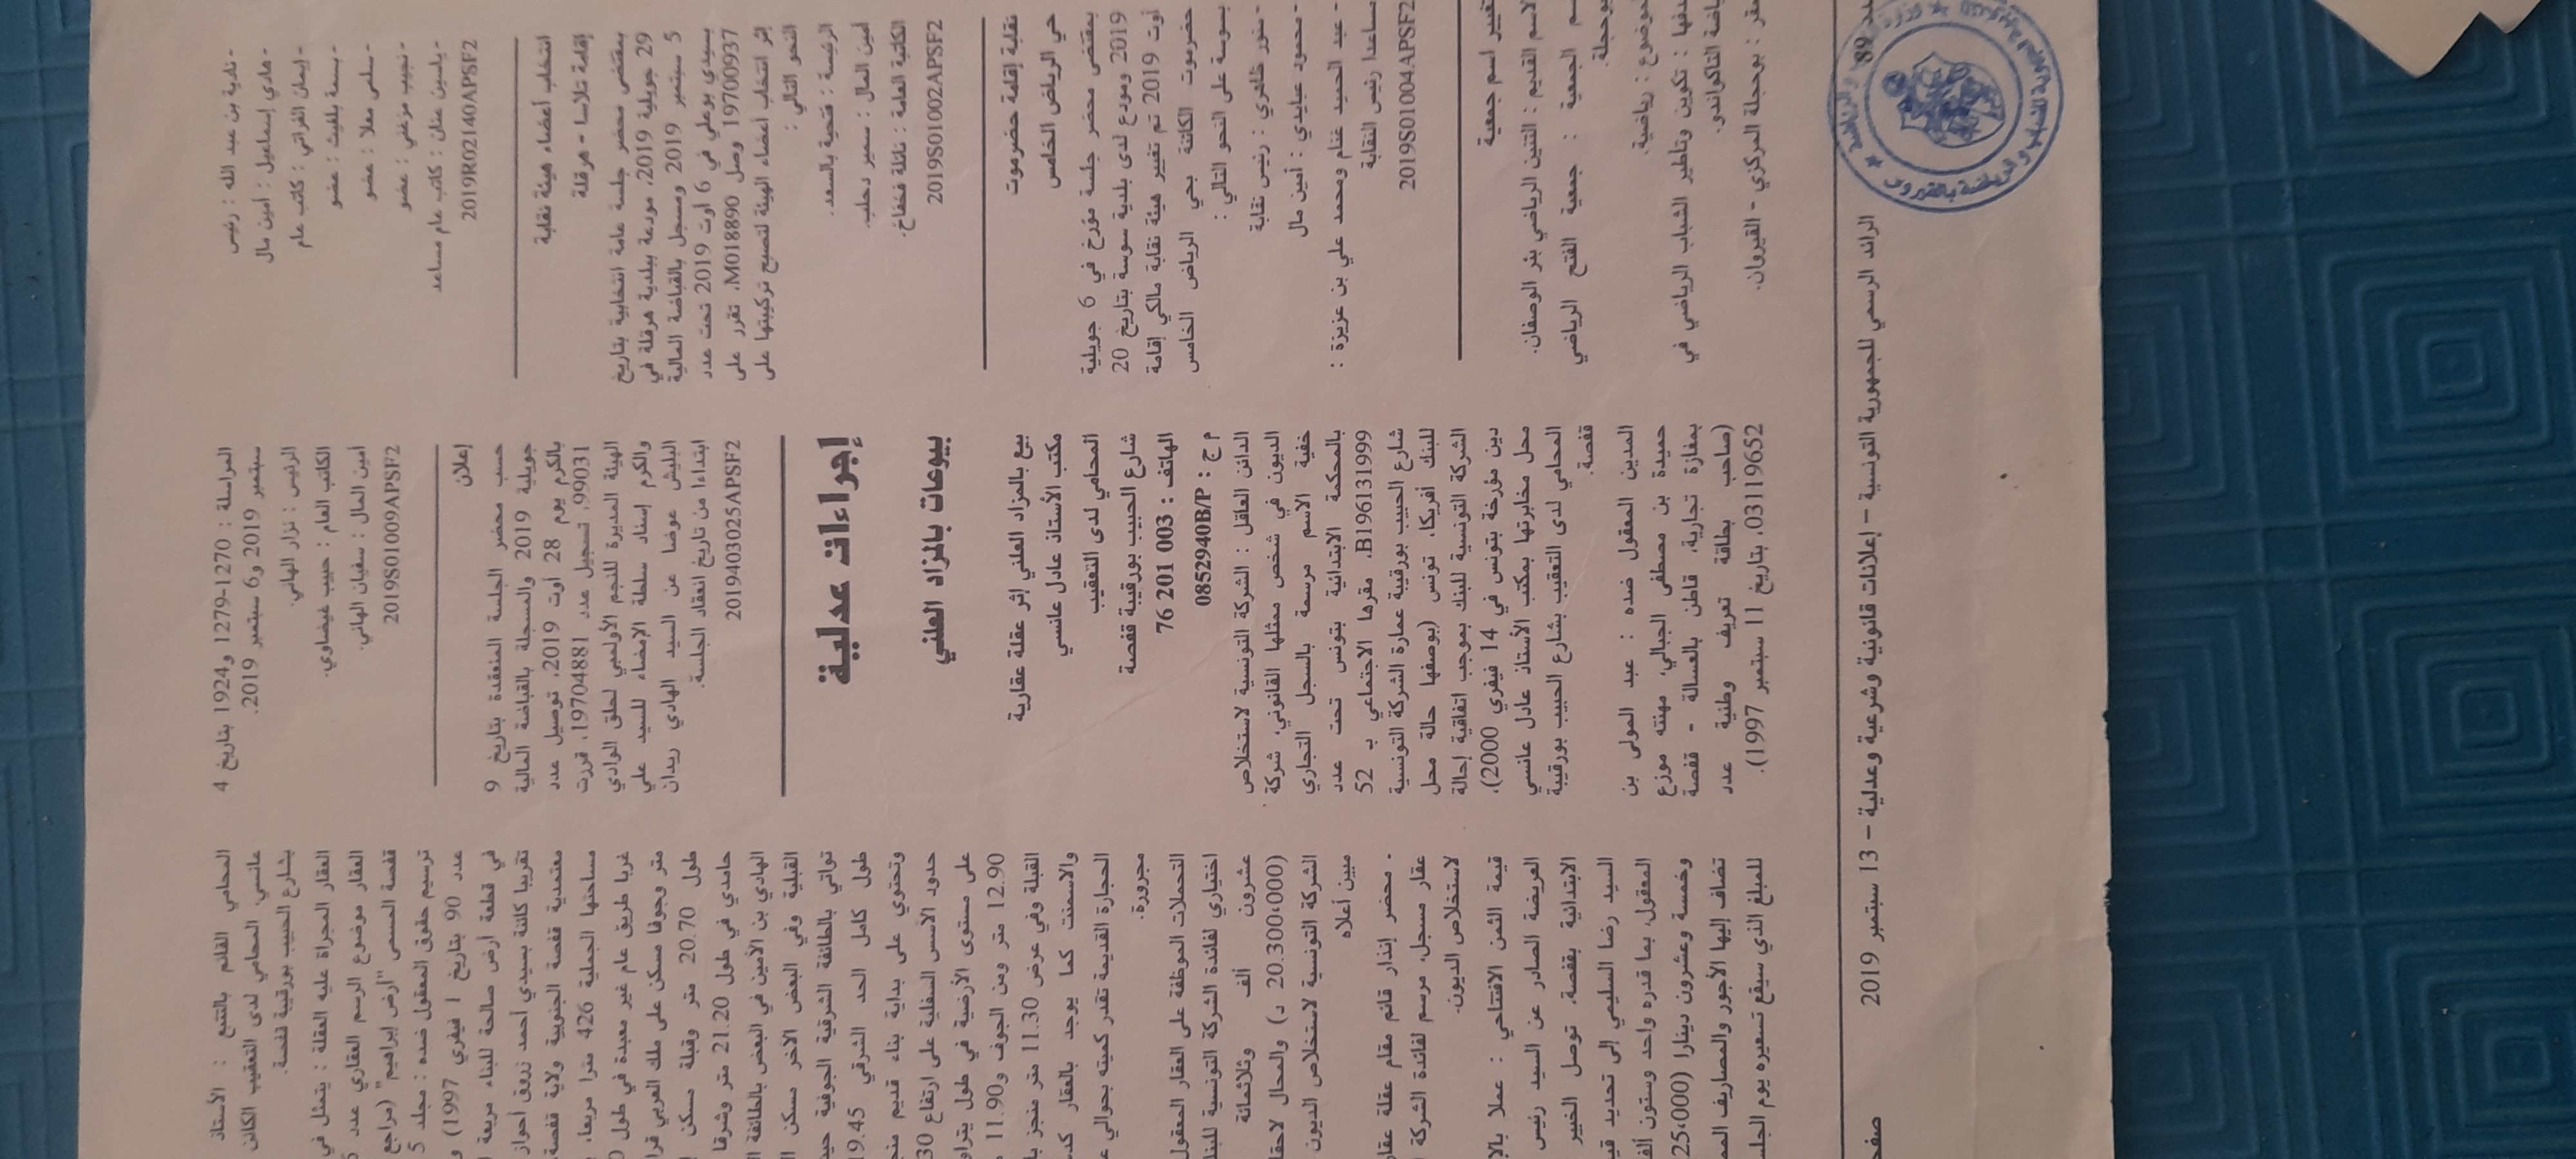 - نادية بن عبد الله : رئيس
- هادي إسماعيل : أمين مال
- إيمان الفراتي : كاتب عام
- بسمة بلغيث : عضو
- سلمى معلا : عضو
- نجيب مزغني : عضو
- ياسين عنان : كاتب عام مساعد
2019R02140APSF2
انتخاب أعضاء هيئة نقابة
إقامة تالاسا - هرقلة
بمقتضى محضر جلسة عامة انتخابية بتاريخ
29 جويلية 2019، مودعة ببلدية هرقلة في
5 سبتمبر 2019 ومسجل بالقباضة المالية
بسيدي بوعلي في 6 أوت 2019 تحت عدد
19700937 وصل M018890، تقرر على
إثر انتخاب أعضاء الهيئة لتصبح تركيبتها على
النحو التالي :
الرئيسة : فتحية بالسعد.
أمين المال : سمير دحلب.
الكاتبة العامة : نائلة فخفاخ.
2019S01002APSF2
نقابة إقامة حضرموت
حي الرياض الخامس
بمقتضى محضر جلسة مؤرخ في 6 جويلية
2019 ومودع لدى بلدية سوسة بتاريخ 20
أوت 2019 تم تغيير هيئة نقابة مالكي إقامة
حضرموت الكائنة بحي الرياض الخامس
بسوسة على النحو التالي :
- منور طاهري : رئيس نقابة
- محمود عبايدي : أمين مال
- عبد الحميد غنام ومحمد علي بن عزيزة :
مساعدا رئيس النقابة
2019S01004APSF2
تغيير اسم جمعية
الاسم القديم : التنين الرياضي بئر الوصفان.
اسم الجمعية : جمعية الفتح الرياضي
بوحجلة.
الموضوع : رياضية.
هدفها : تكوين وتأطير الشباب الرياضي في
رياضة التاكواندو.
المقر : بوحجلة المركزي - القيروان.
المراسلة : 1270-1279 و1924 بتاريخ 4
سبتمبر 2019 و6 سبتمبر 2019.
الرئيس : نزار الهاني.
الكاتب العام : حبيب غيضاوي.
أمين المال : سفيان الهاني.
2019S01009APSF2
إعلان
حسب محضر الجلسة المنعقدة بتاريخ 9
جويلية 2019 والمسجلة بالقباضة المالية
بالكرم يوم 28 أوت 2019، توصيل عدد
99031، تسجيل عدد 19704881، قررت
الهيئة المديرة للنجم الأولمبي لحلق الوادي
والكرم إسناد سلطة الإمضاء للسيد علي
البليش عوضا عن السيد الهادي ريدان
ابتداءا من تاريخ انعقاد الجلسة.
2019403025APSF2
إجراءات عدلية
بيوعات بالمزاد العلني
بيع بالمزاد العلني إثر عقلة عقارية
مكتب الأستاذ عادل عانسي
المحامي لدى التعقيب
شارع الحبيب بورقيبة قفصة
الهاتف : 003 201 76
م ج : 0852940B/P
الدائن العاقل : الشركة التونسية لاستخلاص
الديون في شخص ممثلها القانوني، شركة
خفية الاسم مرسمة بالسجل التجاري
بالمحكمة الابتدائية بتونس تحت عدد
B196131999، مقرها الاجتماعي بـ 52
شارع الحبيب بورقيبة عمارة الشركة التونسية
للبنك أفريكا، تونس (بوصفها حالة محل
الشركة التونسية للبنك بموجب اتفاقية إحالة
دين مؤرخة بتونس في 14 فيفري 2000)،
محل مخابرتها بمكتب الأستاذ عادل عانسي
المحامي لدى التعقيب بشارع الحبيب بورقيبة
قفصة.
المدين المعقول ضده : عبد المولى بن
حميدة بن مصطفى الجبالي، مهنته موزع
بمغازة تجارية، قاطن بالعسالة - قفصة
(صاحب بطاقة تعريف وطنية عدد
03119652، بتاريخ 11 سبتمبر 1997).
المحامي القائم بالتتبع : الأستاذ
عانسي، المحامي لدى التعقيب الكائن
بشارع الحبيب بورقيبة قفصة.
العقار المجراة عليه العقلة : يتمثل في
العقار موضوع الرسم العقاري عدد
قفصة المسمى "أرض إبراهيم" (مراجع
ترسيم حقوق المعقول ضده : مجلد 5
عدد 90 بتاريخ 1 فيفري 1997) و
في قطعة أرض صالحة للبناء مربعة
تقريبا كائنة بسيدي أحمد زروق أحواز
معتمدية قفصة الجنوبية ولاية قفصة،
مساحتها الجملية 426 مترا مربعا،
غربا طريق عام غير معبدة في طول
متر وجوفا مسكن على ملك العربي
طول 20.70 متر وقبلة مسكن
حامدي في طول 21.20 متر وشرقا
الهادي بن الأمين في البعض بالطائفة
القبلية وفي البعض الآخر مسكن
تواتي بالطائفة الشرقية الجوفية
طول كامل الحد الشرقي 19.45
وتحتوي على بداية بناء قديم
حدود الأسس السفلية على ارتفاع 30
على مستوى الأرضية في طول
12.90 متر ومن الجوف و11.90
القبلة وفي عرض 11.30 متر منجز
والاسمنت كما يوجد بالعقار
الحجارة القديمة تقدر كميته بحوالي
مجرورة.
التحملات الموظفة على العقار المعقول
اختياري لفائدة الشركة التونسية للبنك
عشرون ألف وثلاثمائة
(20.300,000 د) والمحال لاحقا
الشركة التونسية لاستخلاص الديون
مبين أعلاه
- محضر إنذار قائم مقام عقلة
عقار مسجل، مرسم لفائدة الشركة
لاستخلاص الديون.
قيمة الثمن الافتتاحي : عملا
العريضة الصادر عن السيد رئيس
الابتدائية بقفصة، توصل الخبير
السيد رضا السليمي إلى تحديد
المعقول، بما قدره واحد وستون
وخمسة وعشرون دينارا (25,000
تضاف إليها الأجور والمصاريف
للمبلغ الذي سيقع تسعيره يوم
عدد 89
الرائد الرسمي للجمهورية التونسية – إعلانات قانونية وشرعية وعدلية – 13 سبتمبر 2019